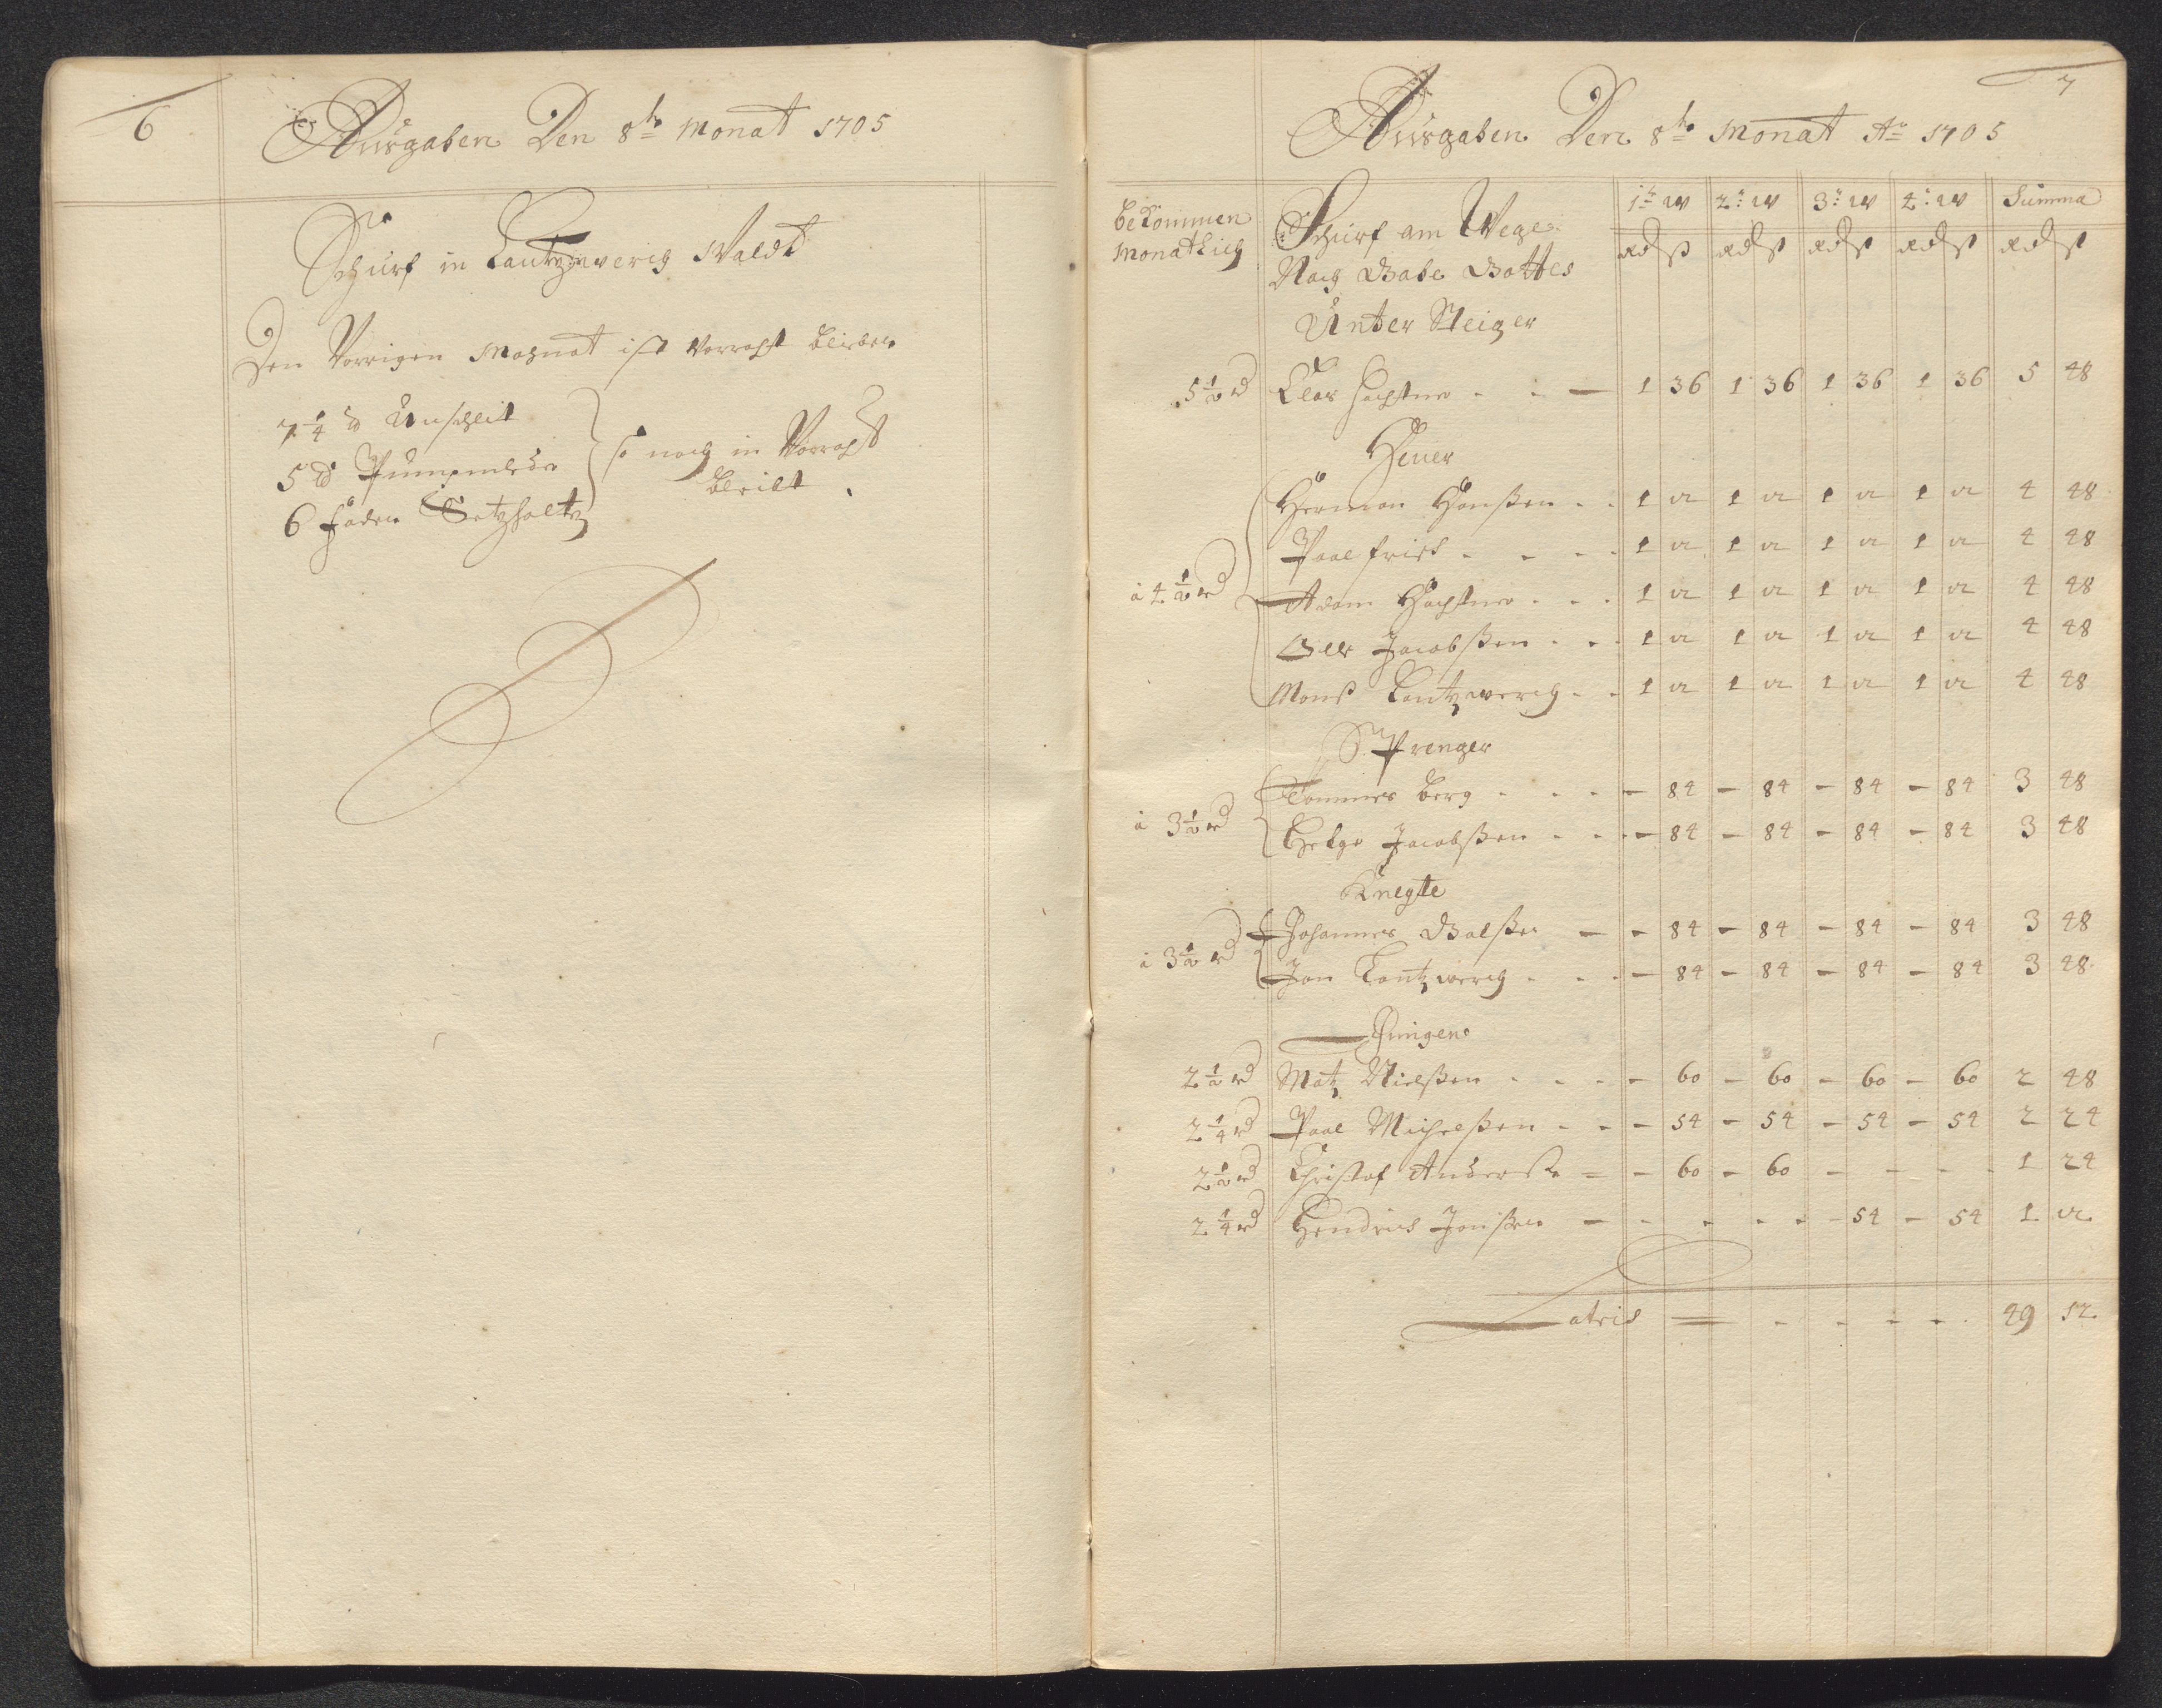 6
Ausgaben Den 8te Monat 1705
Schurf in Lautzwerig Waldt
Den Vorrigen Mohnat ist Vorraht bliben
7 1/4 ℔ Unschlit
5 ℔ Pumpenleder
6 Faden Setzholtz
so noch in Vorraht
bleibt
7
Ausgaben Den 8te Monat Ao 1705
bekommen
Monathlich
Schurf am Wege
Nach Gabe Gottes
Unter Steiger
1te W 2: W 3: W 4: W Summa
Rd ß Rd ß Rd ß Rd ß Rd ß
5 1/2 rd Clas - - - 1 36 1 36 1 36 1 36 5 48
Heuer
à 4 1/2 rd
Herman Hanßen - - 1 12 1 12 1 12 1 12 4 48
Paal Frick - - - 1 12 1 12 1 12 1 12 4 48
Adam - - - 1 12 1 12 1 12 1 12 4 48
Olle Jacobßen - - 1 12 1 12 1 12 1 12 4 48
Monß Lautzwerig - - 1 12 1 12 1 12 1 12 4 48
Prenger
à 3 1/2 rd
Tommes Berg - - - - 84 - 84 - 84 - 84 3 48
Helge Jacobßen - - - 84 - 84 - 84 - 84 3 48
Knegte
à 3 1/2 rd
Johannes Galßen - - 84 - 84 - 84 - 84 3 48
Jon Lautzwerig - - - 84 - 84 - 84 - 84 3 48
Jungens
2 1/2 rd Matz Nielßen - - - - 60 - 60 - 60 - 60 2 48
2 1/4 rd Paal Michelßen - - - 54 - 54 - 54 - 54 2 24
2 1/2 rd Christof Anderße - - 60 - 60 - - - - 1 24
2 1/4 rd Hendrick Jonßen - - - - - - 54 - 54 1 12
Latris - - - - - 49 12